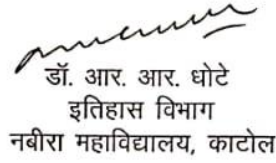 डॉ. आर. आर. धोटे
इतिहास विभाग
नबीरा महाविद्यालय, काटोल